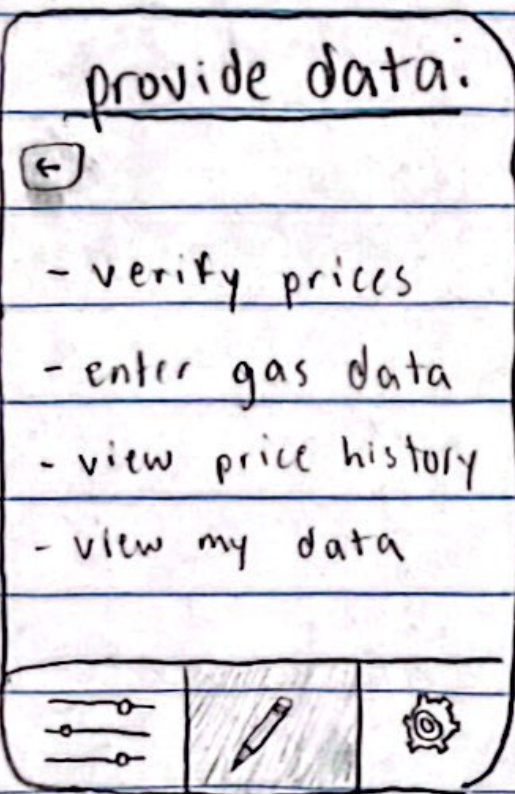 provide data:
←
- verify prices
- enter gas data
- view price history
- view my data